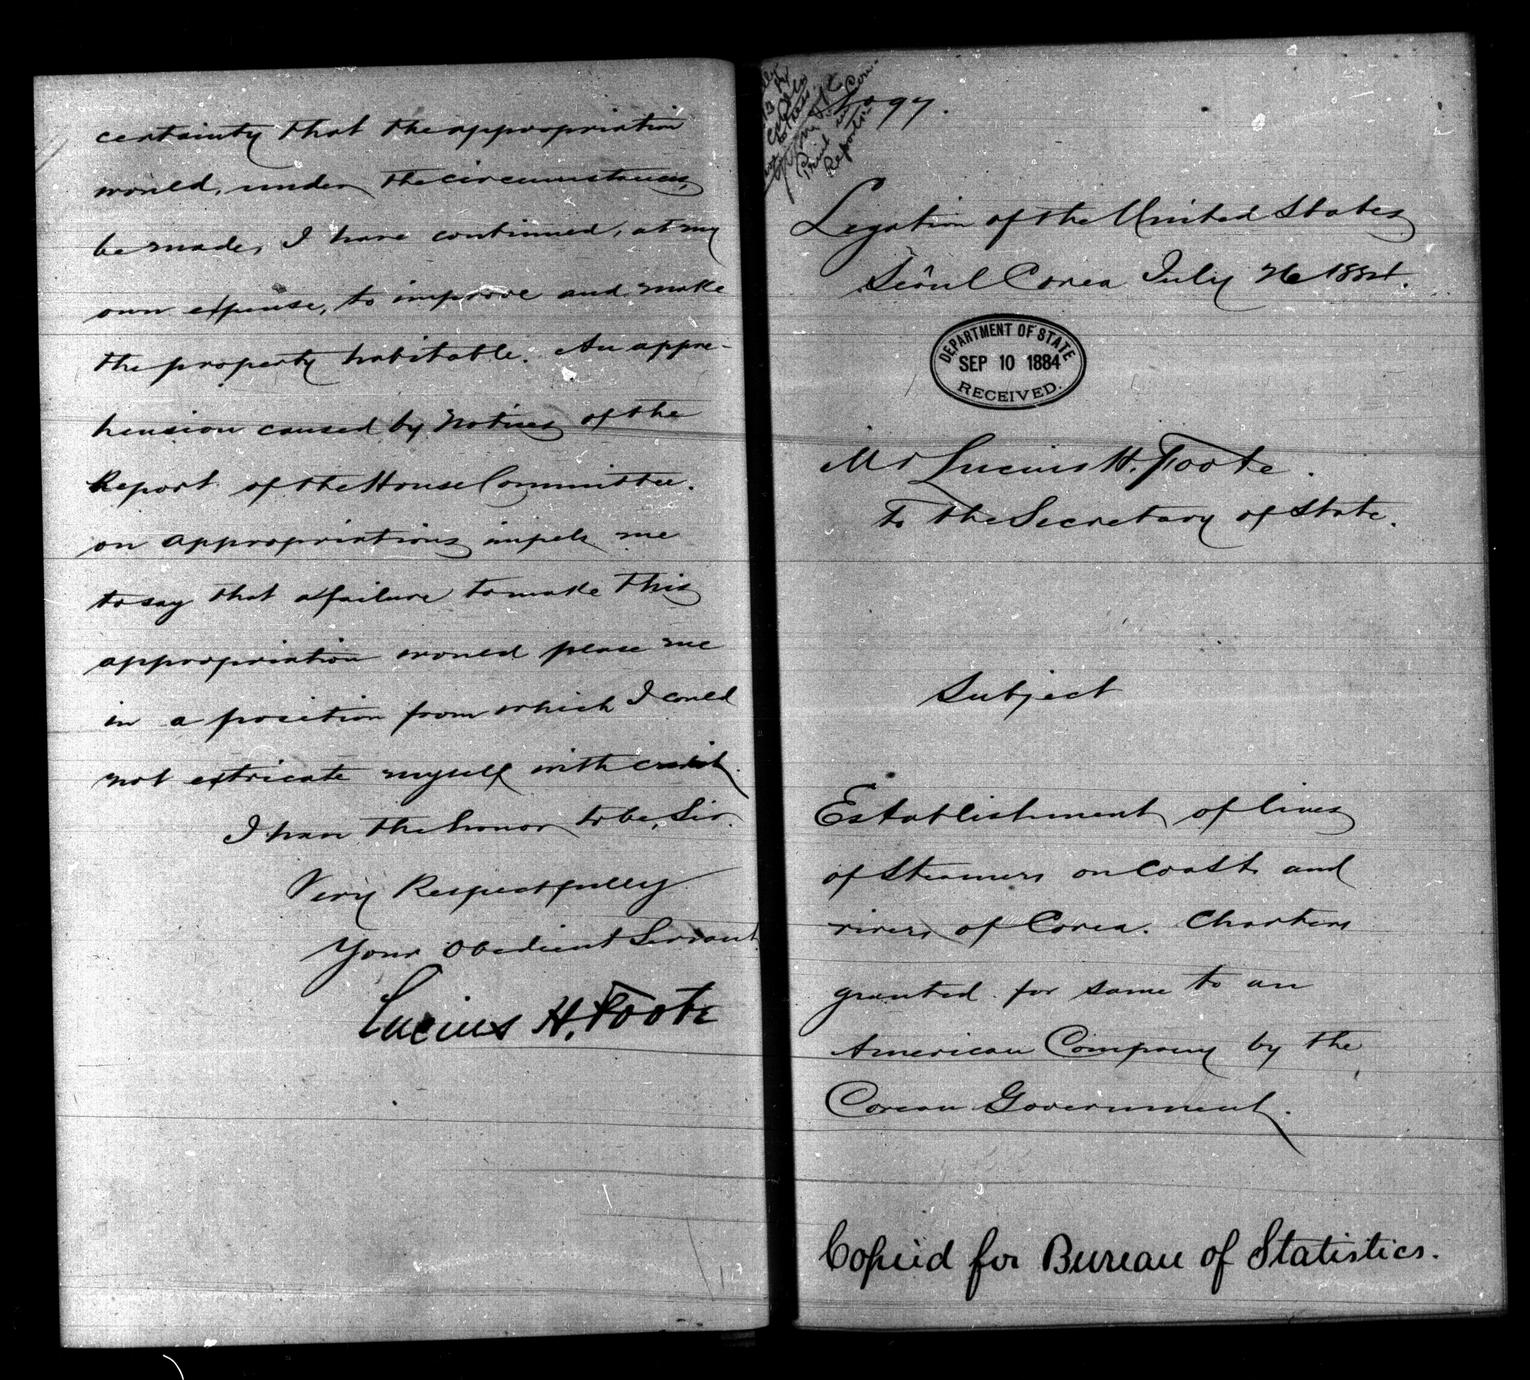 certainty that the appropriation
would, under the circumstances,
be made, I have continued, at my
own expense, to improve and make
the property habitable. An appre-
hension caused by notices of the
Report of the House Committee
on appropriations impels me
to say that a failure to make this
appropriation would place me
in a position from which I could
not extricate myself with credit.
I have the honor to be, Sir.
Very Respectfully
Your Obedient Servant
Lucius H. Foote
No 97.
Print in Con.
Reports
Legation of the United States
Seôul Corea July 26 1884.
DEPARTMENT OF STATE
SEP 10 1884
RECEIVED.
Mr Lucius H. Foote.
To the Secretary of State.
Subject
Establishment of lines
of Steamers on Coast and
rivers of Corea. Charters
granted for same to an
American Company by the
Corean Government.
Copied for Bureau of Statistics.